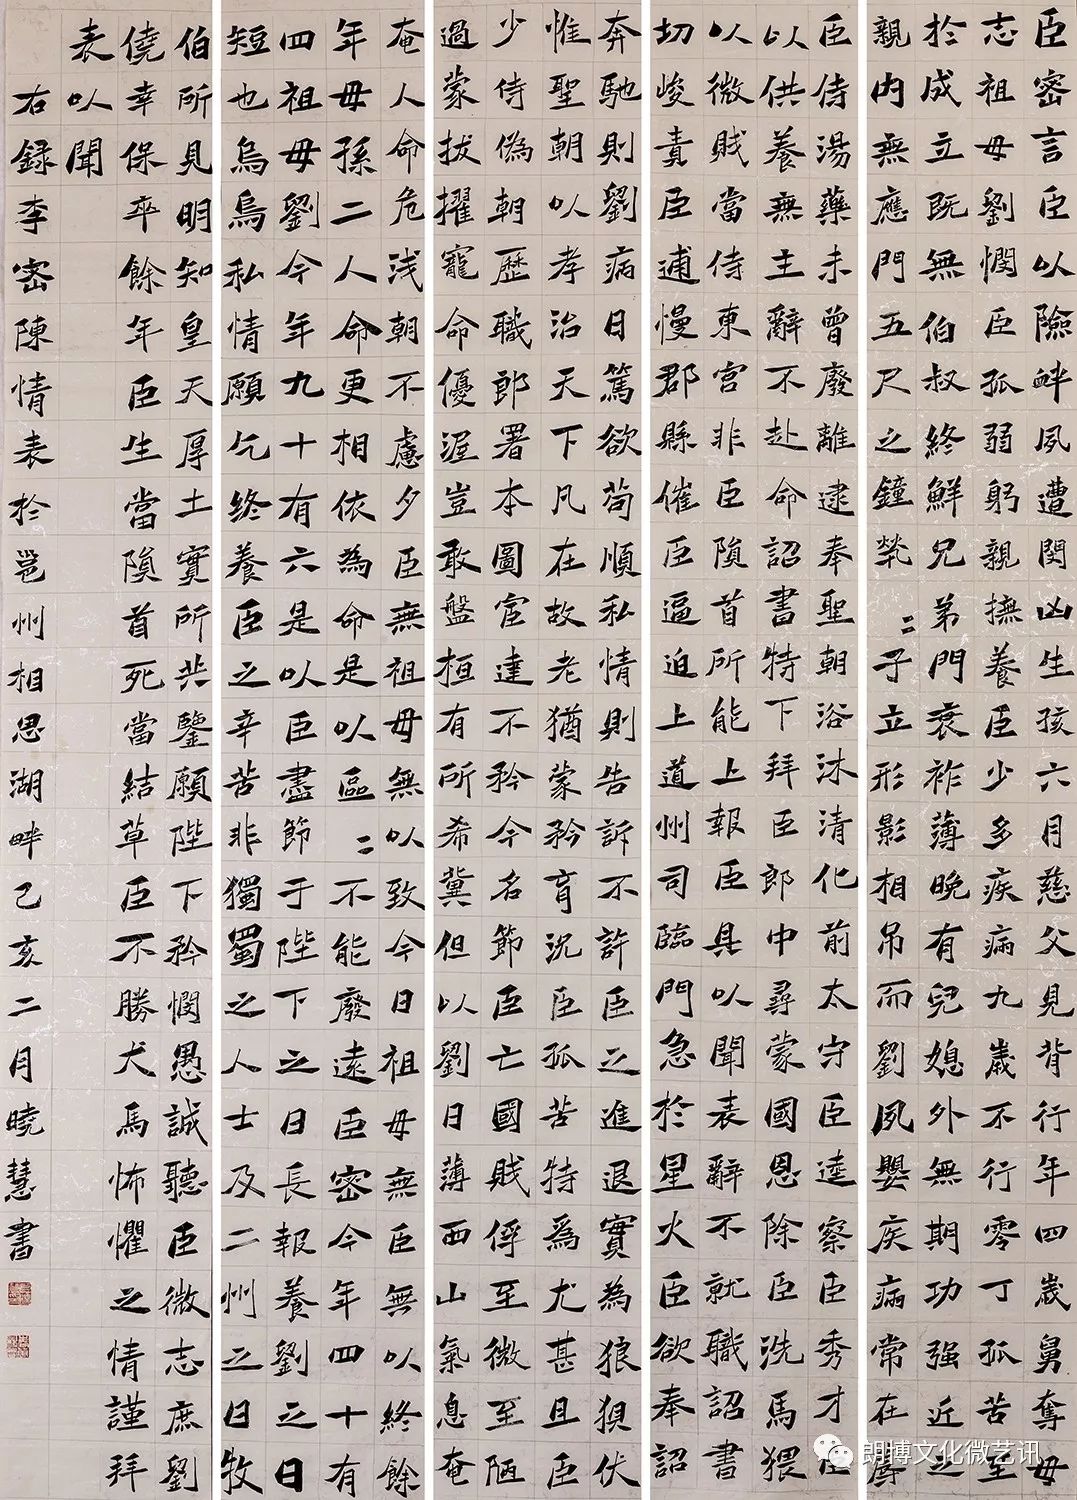 臣密言臣以險衅夙遭閔凶生孩六月慈父見背行年四歲舅奪母
志祖母劉憫臣孤弱躬親撫養臣少多疾病九歲不行零丁孤苦至
於成立既無伯叔終鮮兄弟門衰祚薄晚有兒媳外無期功强近之
親内無應門五尺之鐘煢〻孑立形影相吊而劉夙嬰疾病常在蓐
臣侍湯藥未曾廢離逮奉聖朝浴沐清化前太守臣逵察臣秀才臣
以供養無主辭不赴命詔書特下拜臣郎中尋蒙國恩除臣洗馬猥
以微賤當侍東宮非臣隕首所能上報臣具以聞表辭不就職詔書
切峻責臣逋慢郡縣催臣逼迫上道州司臨門急於星火臣欲奉詔
奔馳則劉病日篤欲苟順私情則告訴不許臣之進退實為狼狽伏
惟聖朝以孝治天下凡在故老猶蒙矜育況臣孤苦特爲尤甚且臣
少侍偽朝歷職郎署本圖宦達不矜今名節臣亡國賤俘至微至陋
過蒙拔擢寵命優渥豈敢盤桓有所希冀但以劉日薄西山氣息奄
奄人命危浅朝不慮夕臣無祖母無以致今日祖母無臣無以終餘
年母孫二人命更相依為命是以區〻不能廢遠臣密今年四十有
四祖母劉今年九十有六是以臣盡節于陛下之日長報養劉之日
短也烏鳥私情願乞終養臣之辛苦非獨蜀之人士及二州之日牧
伯所見明知皇天厚土實所共鑒願陛下矜憫愚誠聽臣微志庶劉
僥幸保卒餘年臣生當隕首死當結草臣不勝犬馬怖懼之情謹拜
表以聞
右録李密陳情表於邕州相思湖畔己亥二月曉慧書
朗博文化微艺讯